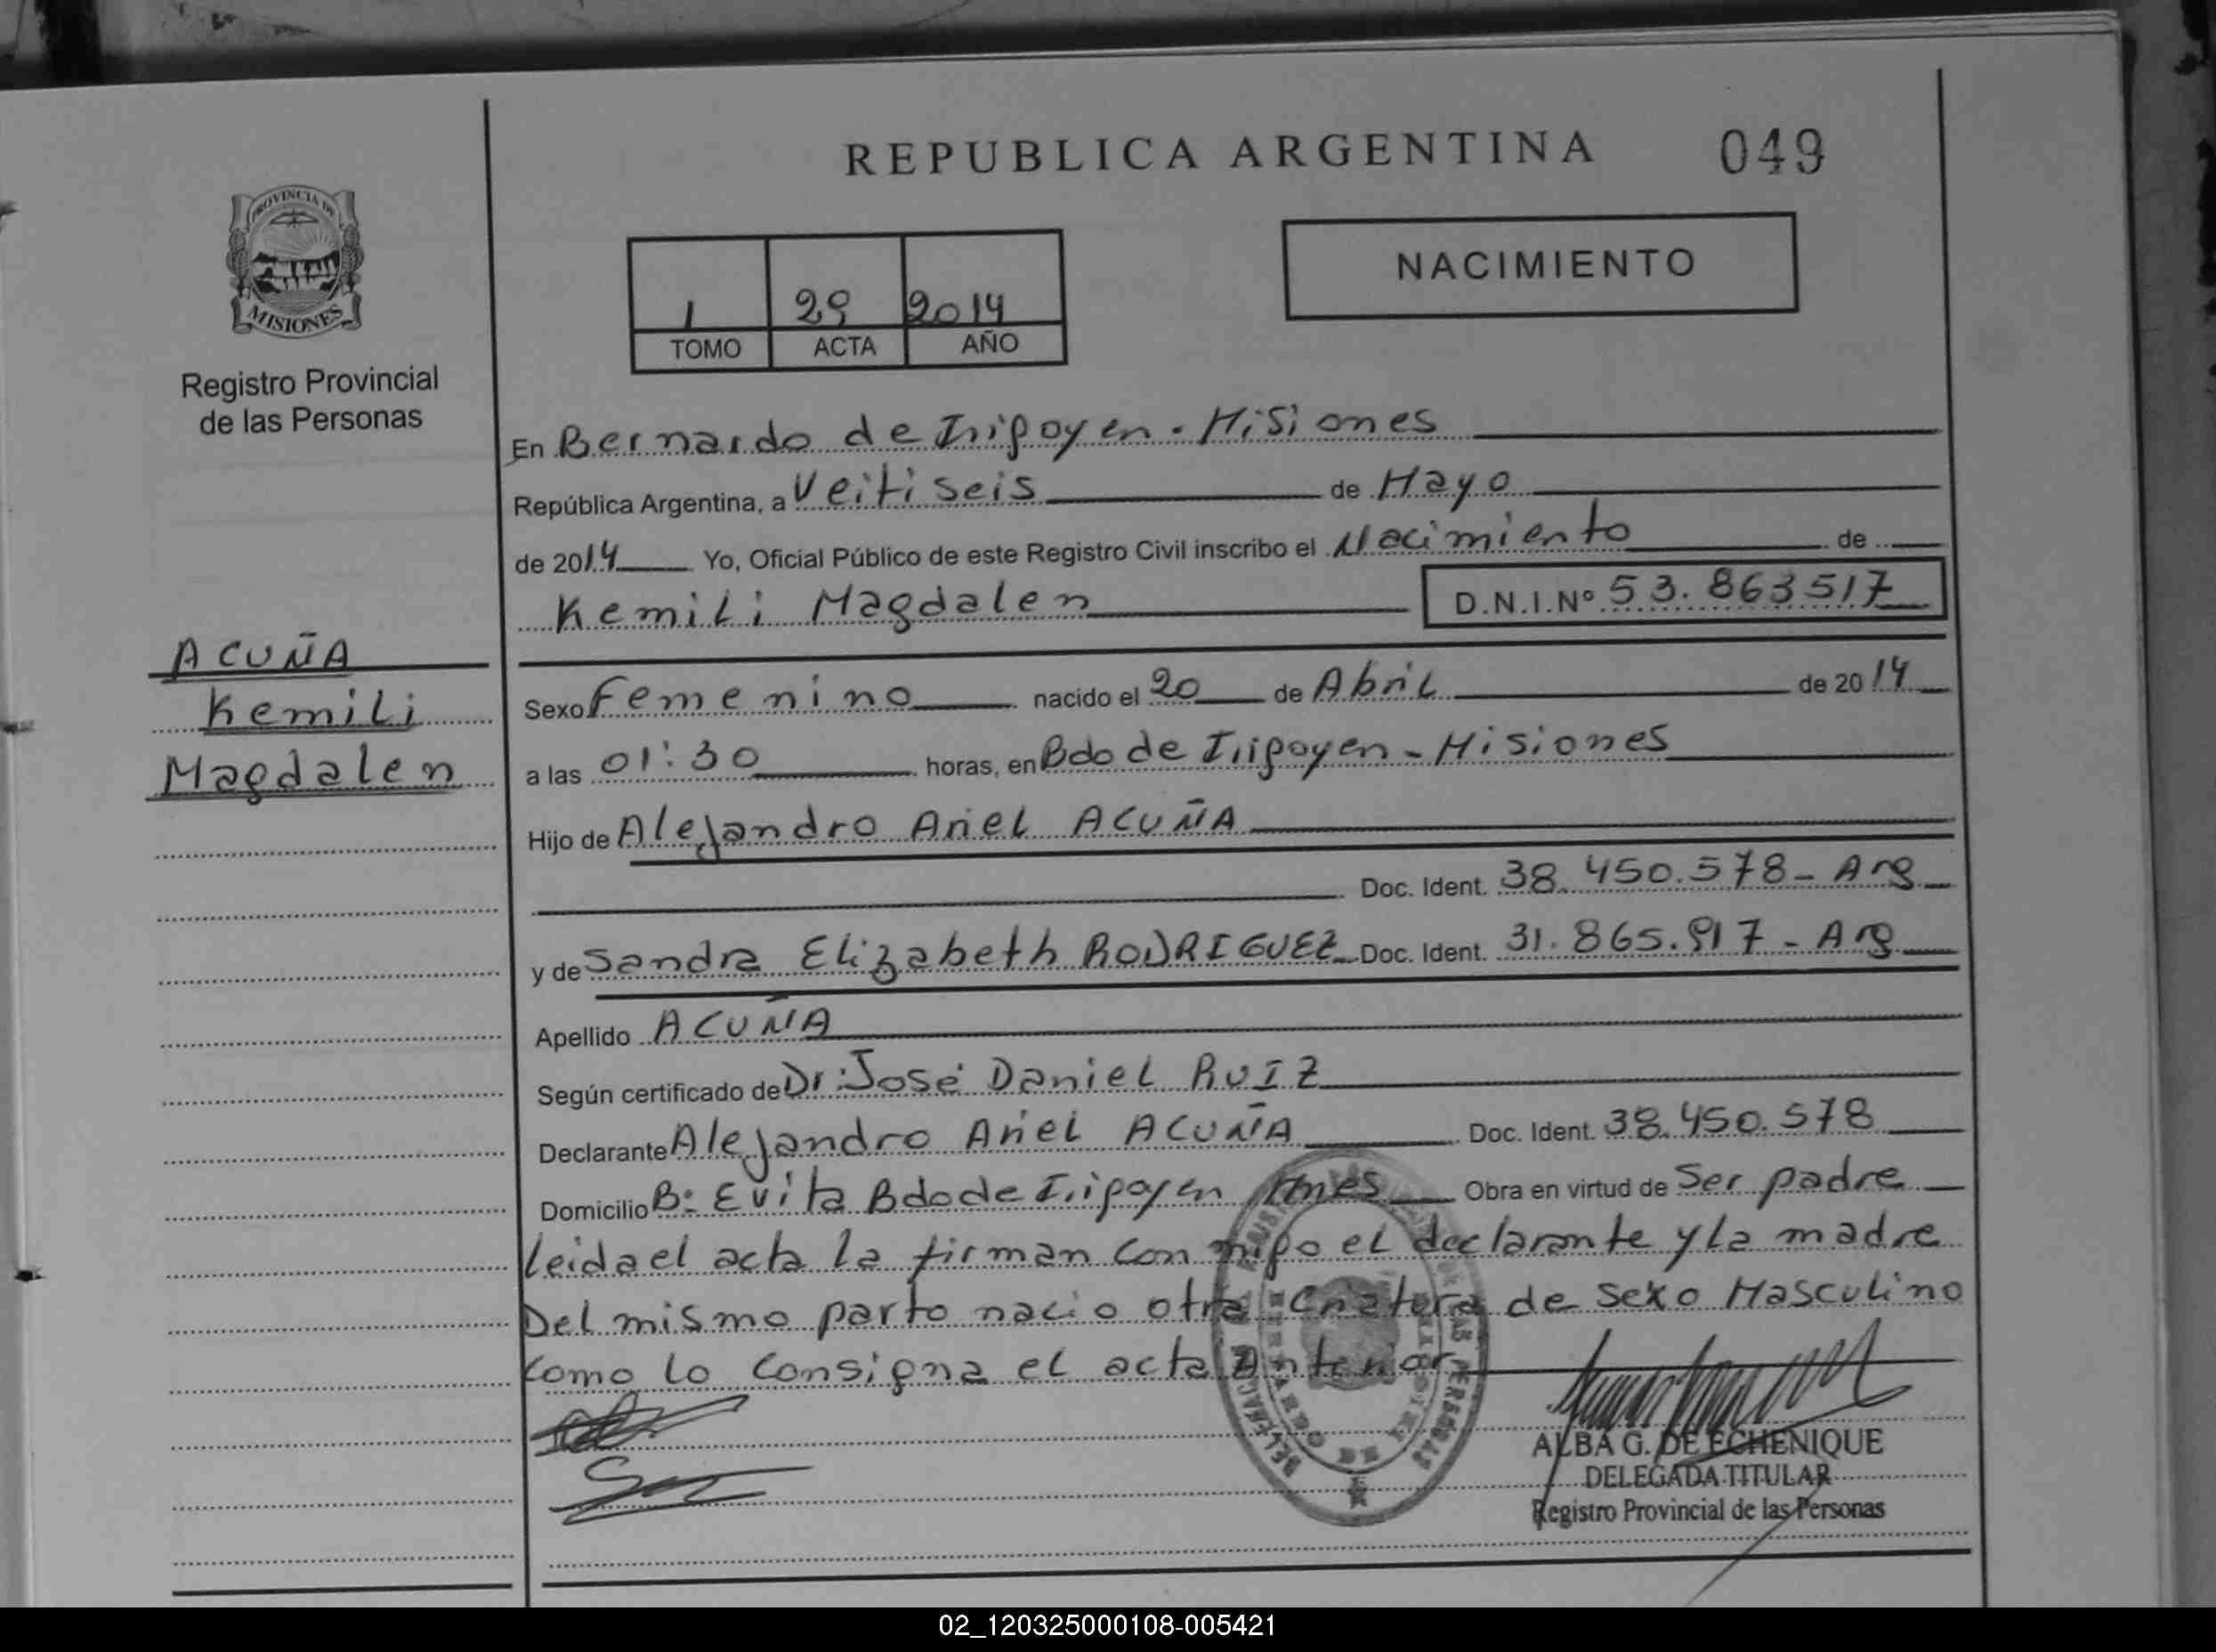 REPUBLICA ARGENTINA
049
PROVINCIA DE
MISIONES
Registro Provincial
de las Personas
1 29 2014
TOMO ACTA AÑO
NACIMIENTO
En Bernardo de Irigoyen - Misiones
República Argentina, a Veitiseis de Mayo
de 2014 Yo, Oficial Público de este Registro Civil inscribo el Nacimiento de
Kemili Magdalen D.N.I.Nº 53.863517
ACUÑA
Kemili
Magdalen
Sexo Femenino nacido el 20 de Abril de 2014
a las 01:30 horas, en Bdo de Irigoyen - Misiones
Hijo de Alejandro Ariel ACUÑA
Doc. Ident. 38.450.578 - Arg
y de Sandra Elizabeth RODRIGUEZ Doc. Ident. 31.865.917 - Arg
Apellido ACUÑA
Según certificado de Dr: José Daniel RUIZ
Declarante Alejandro Ariel ACUÑA Doc. Ident. 38.450.578
Domicilio B: Evita Bdo de Irigoyen Mnes Obra en virtud de Ser padre
leida el acta la firman con migo el declarante y la madre
Del mismo parto nacio otra criatura de sexo Masculino
como lo consigna el acta Anterior
ALBA G. DE ECHENIQUE
DELEGADA TITULAR
Registro Provincial de las Personas
02_120325000108-005421